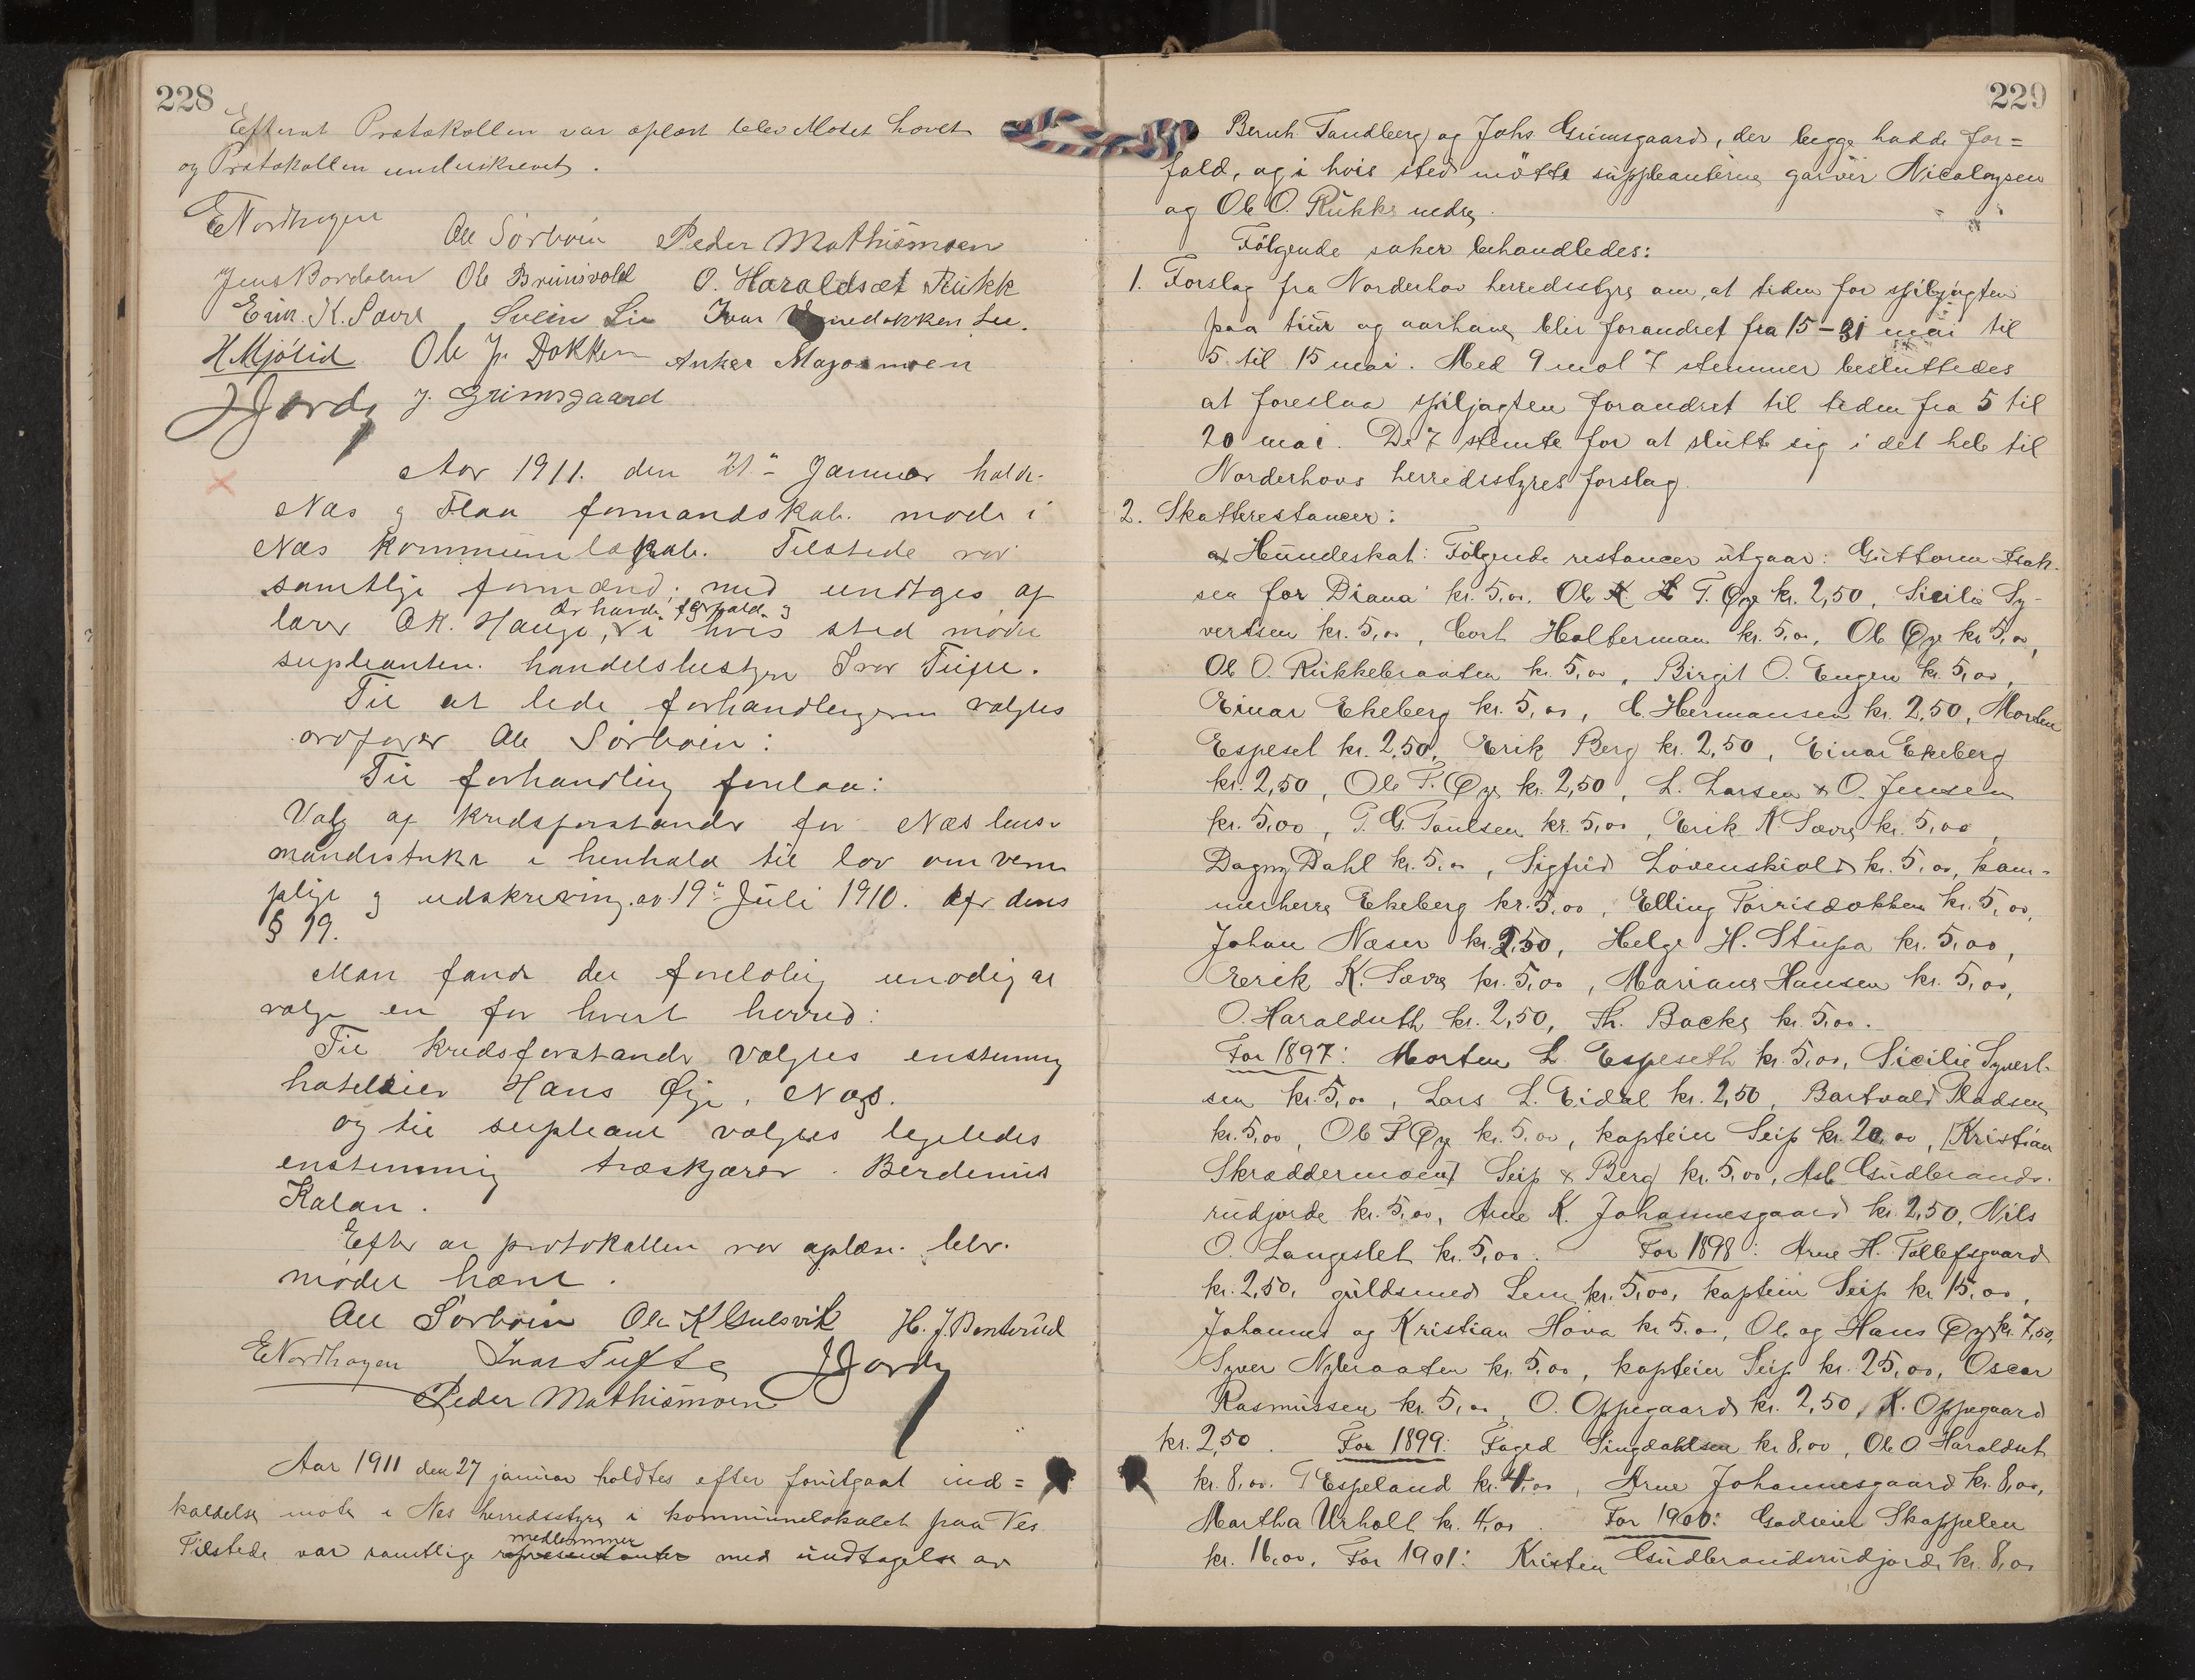 228
Efterat Protokollen var oplæst blev Mødet hævet
og Protokollen underskrevet.
ENordhagen Ole Sørbøen Peder Mathismoen
Jens Bordalen Ole Brunsvold O. Haraldset Rukk
Erik K. Sævre Svein Lie Ivar Lie.
H Mjölid Ole Jr. Dokken Anker Magosmoen
JJordy J. Grimsgaard
Aar 1911. den 21de Januar holdt
Næs og Flaa formandskab. møde i
Næs kommunelokale. Tilstede var
samtlige formænd; med undtages af
der havde forfald og
lærer O.K. Hauge, i hvis sted mødte
supleanten. handelsbestyrer Ivar Tufte.
Til at lede forhandlingerne valgtes
ordfører Ole Sørbøen:
Til forhandling forelaa:
Valg af kredsforstander for Næs lens-
mandsdistrikt i henhold til lov om verne
pligt og udskrivning av 19de Juli 1910. dens
§ 19.
Man fandt det foreløbig unødig at
vælge en for hvert herred:
Til kredsforstander valgtes enstemmig
hoteleier Hans Øye, Næs.
og til supleant valgtes ligeledes
enstemmig træskjærer Berdinus
Kalan.
Efter at protokollen var oplæst blev
mødet hævet.
Ole Sørbøen Ole K Gulsvik H. J. Benterud
ENordhagen Ivar Tufte JJordy
Peder Mathismoen
Aar 1911 den 27 januar holdtes efter forutgaat ind=
kaldelse møte i Nes herredsstyre i kommunelokalet paa Nes
medlemmer
Tilstede var samtlige representanter med undtagelse av
229
Bernh. Tandberg og Johs Grimsgaard, der begge hadde for=
fald, og i hvis sted møtte suppleanterne garver Nicolaysen
og Ole O. Rukke nedre.
Følgende saker behandledes:
1. Forslag fra Norderhov herredsstyre om, at tiden for spiljagten
paa tiur og aarhane blir forandret fra 15-31 mai til
5 til 15 mai. Med 9 mot 7 stemmer besluttedes
at foreslaa spiljagten forandret til tiden fra 5 til
20 mai. De 7 stemte for at slutte sig i det hele til
Norderhovs herredsstyres forslag.
2. Skatterestancer:
a) Hundeskat: Følgende restancer utgaar: Guttorm Isak-
sen for Diana kr. 5,00. Ole T. Øye kr. 2,50, Sicilie Sy-
vertsen kr. 5,00, Cort Holterman kr. 5,00, Ole Øye kr 5,00,
Ole O. Rukkebraaten kr. 5,00, Birgit O. Engen kr. 5,00,
Einar Ekeberg kr. 5,00, C. Hermansen kr. 2,50, Morten
Espeset kr. 2,50, Erik Berg kr. 2,50, Einar Ekeberg
kr. 2,50, Ole T. Øye kr. 2,50, L. Larsen & O. Jensen
kr. 5,00, T. G. Paulsen kr. 5,00, Erik K. Sævre kr. 5,00,
Dagny Dahl kr. 5,00, Sigfrid Løvenskiold kr. 5,00, kam-
merherre Ekeberg kr. 5,00, Elling Torrisdokken kr. 5,00,
Johan Næser kr. 2,50, Helge H. Stupa kr. 5,00,
Erik K. Sævre kr. 5,00, Mariane Hansen kr. 5,00,
O. Haraldseth kr. 2,50, Th. Backe kr. 5,00.
For 1897: Morten L. Espeseth kr. 5,00, Sicilie Syvert-
sen kr. 5,00, Lars L. Eidal kr. 2,50, Bartvald Madsen
kr. 5,00, Ole T Øye kr. 5,00, kaptein Seip kr. 20,00, [Kristian
Skræddermoen] Seip & Berg kr. 5,00, Asle Gudbrands-
rudjorde kr. 5,00, Arne K. Johannesgaard kr. 2,50, Nils
O. Langeslet kr. 5,00. For 1898: Arne H. Tollefsgaard
kr. 2,50, guldsmed Lem kr. 5,00, kaptein Seip kr 15,00,
Johannes og Kristian Hova kr 5,00, Ole og Hans Øye kr. 7,50,
Syver Nybraaten kr. 5,00, kaptein Seip kr. 25,00, Oscar
Rasmussen kr. 5,00, O. Oppegaard kr. 2,50, K. Oppegaard
kr. 2,50. For 1899: Faged Singdahlsen kr 8,00, Ole O Haraldset
kr. 8,00. T Espeland kr. 4,00, Arne Johannesgaard kr. 8,00,
Martha Urholt kr. 4,00. For 1900: Godseier Skappelen
kr. 16,00. For 1901: Kristen Gudbrandsrudjorde kr. 8,00